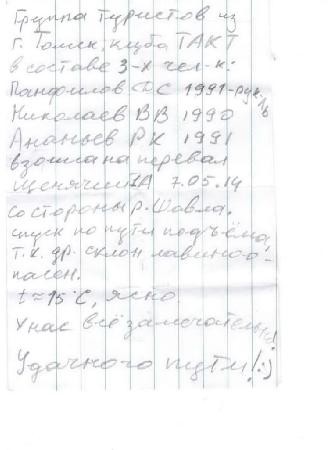 Группа туристов из
г. Томск, клуба ТАКТ
в составе 3-х чел-к:
Панфилов ФС 1991-рук-ль
Николаев ВВ 1990
Ананьев РК 1991
взошла на перевал
Щенячий 1А 7.05.14
со стороны р. Шавла.
спуск по пути подъёма,
т.к. др. склон лавиноо-
пасен.
t ≈ 15°C, ясно
У нас всё замечательно!
Удачного пути! :)